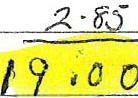 2.85
19.00